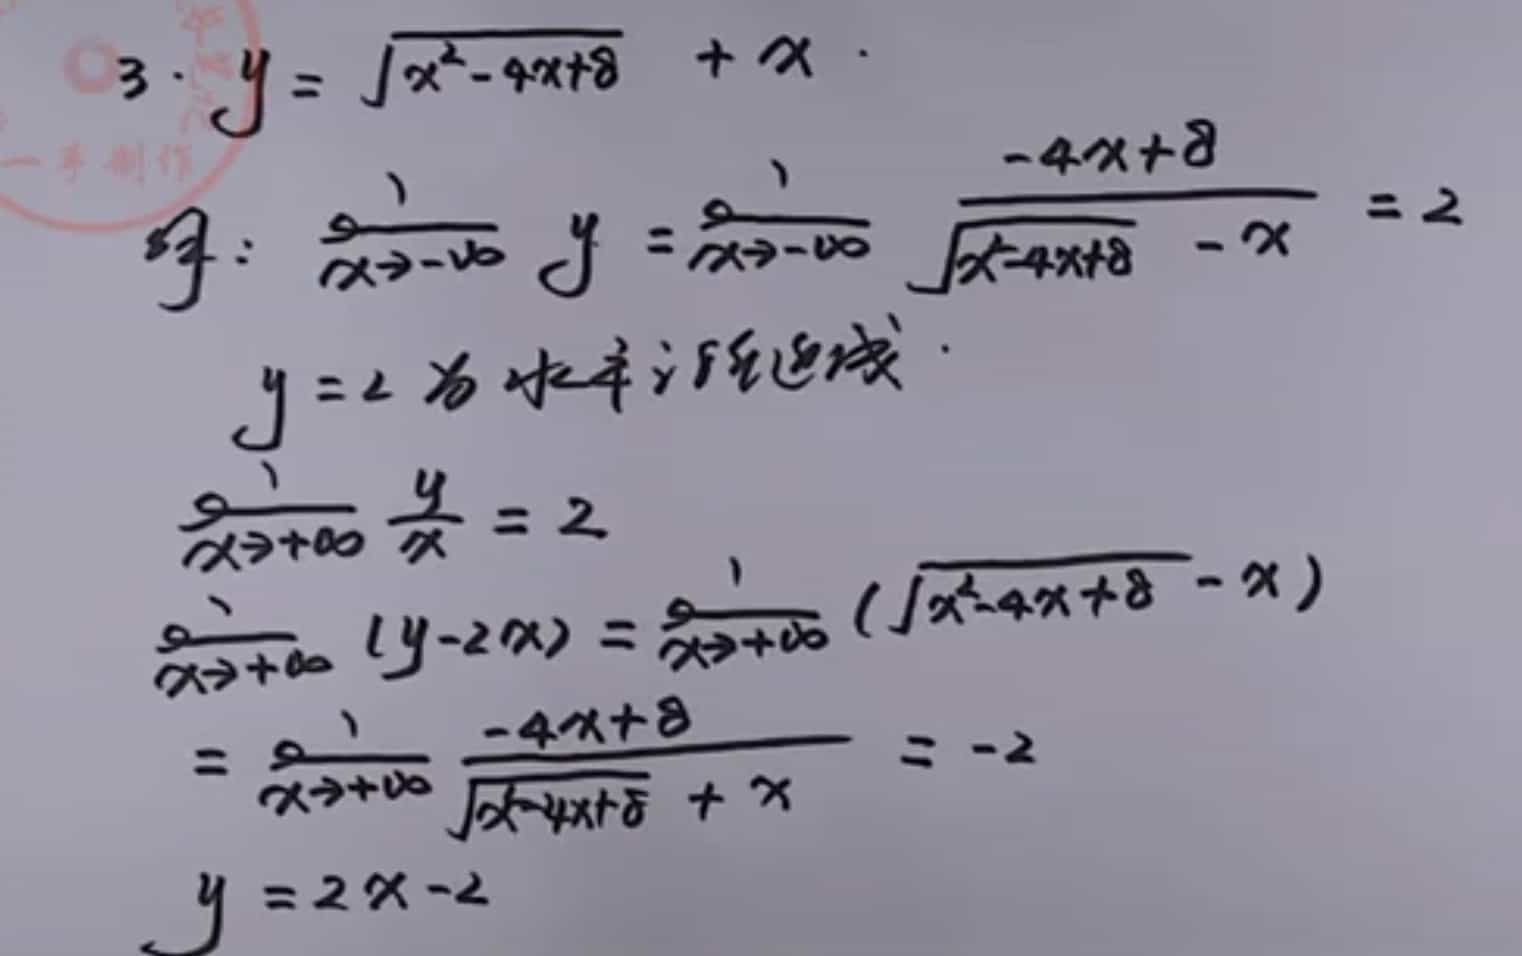 3. y = √(x²-4x+8) + x .
解: lim x→-∞ y = lim x→-∞ (-4x+8)/(√(x²-4x+8) - x) = 2
y = 2 为水平渐近线.
lim x→+∞ y/x = 2
lim x→+∞ (y-2x) = lim x→+∞ (√(x²-4x+8) - x)
= lim x→+∞ (-4x+8)/(√(x²-4x+8) + x) = -2
y = 2x-2
一手制作